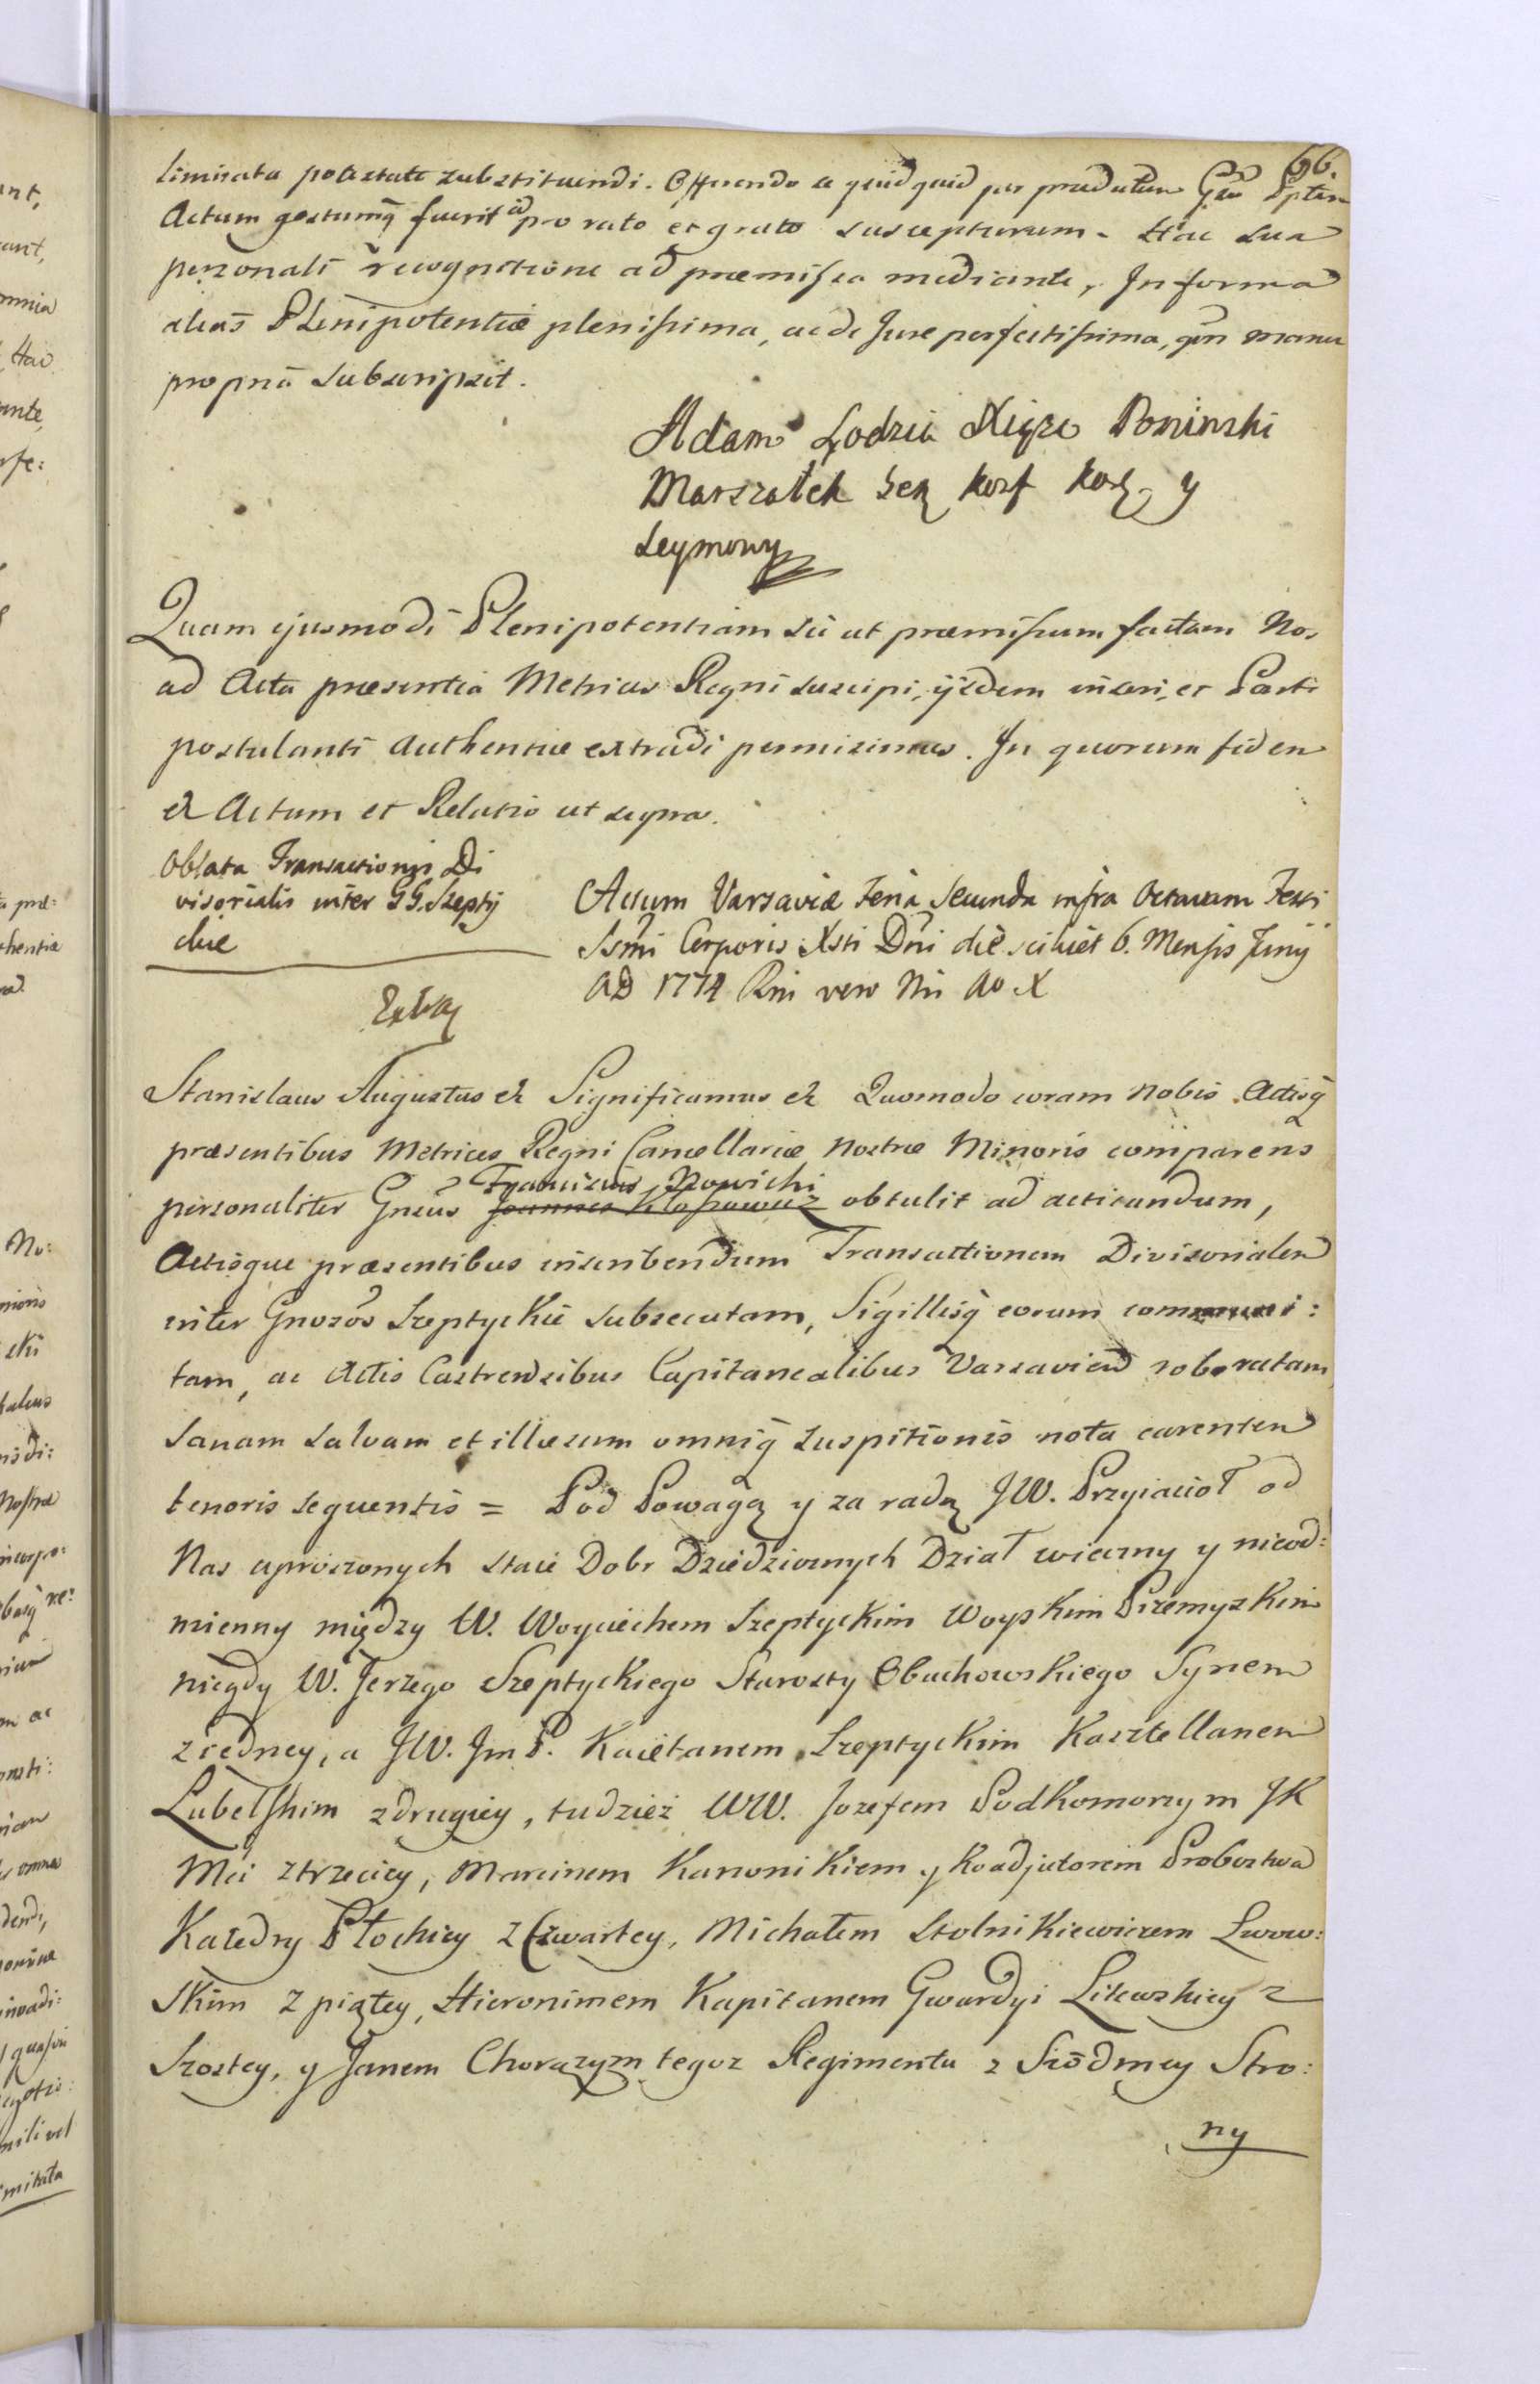 66.
limitata potestate substituendi. Offerendo se quidquid per praedictum Gsu Pptem
Actum gestumq fuerit id pro rato et grato suscepturum. Hac sua
personali recognitione ad praemissa mediante, In forma
alias Plenipotentiae plenissima, ac de Jure perfectissima, qm manu
propria subscripsit.
Adam Łodzia Xiąże Poninski
Marszałek Sen Konf Kor. y
Seymowy
Quam ejusmodi Plenipotentiam sic ut praemissum factam Nos
ad Acta praesentia Metrices Regni suscipi, ijsdem inseri, et Parti
postulanti authentice extradi permisimus. In quorum fidem
et Actum et Relatio ut supra.
Oblata Transactionis Di
visorialis inter GG. Szepty
ckie
Extrad
Actum Varsaviae Feria Secunda infra Octavam Festi
Ssmi Corporis Xsti Dni die scilicet 6. Mensis Junij
AD 1774 Rni vero Nri Ao X
Stanislaus Augustus et Significamus et Quomodo coram Nobis Actisq
praesentibus Metrices Regni Cancellariae Nostrae Minoris comparens
Franciscus Nowicki
personaliter Gnsus Joannes Kłossowicz obtulit ad acticandum,
Actisque praesentibus inscribendum Transactionem Divisorialem
inter Gnosos Szeptyckie subsecutam, Sigillisq eorum communi:
tam, ac Actis Castrensibus Capitanealibus Varsavien roboratam
Sanam salvam et illaesam omniq suspitionis nota carentem
tenoris sequentis = Pod Powagą y za radą JW. Przyiacioł od
Nas uproszonych staie Dobr Dziedzicznych Dział wieczny y nieod:
mienny między W. Woyciechem Szeptyckim Woyskim Przemyskim
niegdy W. Jerzego Szeptyckiego Starosty Obuchowskiego Synem
z iedney, a JW. Jm P. Kaietanem Szeptyckim Kasztellanem
Lubelskim z drugiey, tudzież WW. Jozefem Podkomorzym JK
Mci z trzeciey, Marcinem Kanonikiem y Koadjutorem Probostwa
Katedry Płockiey z Czwartey, Michałem Stolnikiewiczem Lwow:
skim z piątey, Hieronimem Kapitanem Gwardyi Litewskiey z
Szostey, y Janem Chorązym tegoz Regimentu z Siódmey Stro:
ny